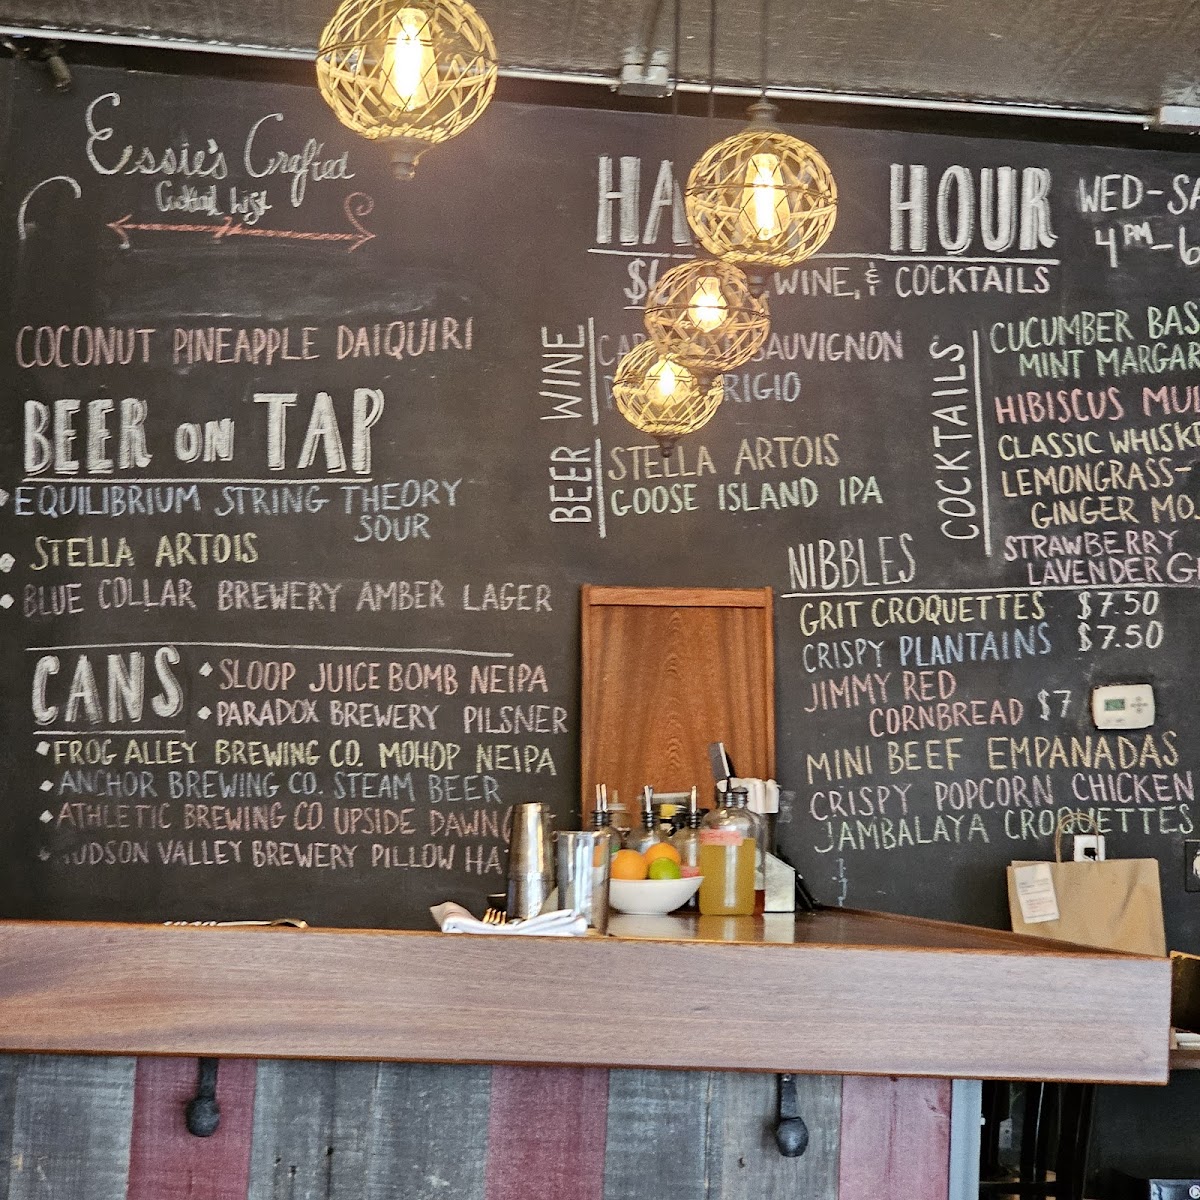 Essie's Crafted
Cocktail List
COCONUT PINEAPPLE DAIQUIRI
BEER ON TAP
EQUILIBRIUM STRING THEORY
SOUR
STELLA ARTOIS
BLUE COLLAR BREWERY AMBER LAGER
CANS
SLOOP JUICE BOMB NEIPA
PARADOX BREWERY PILSNER
FROG ALLEY BREWING CO. MOHOP NEIPA
ANCHOR BREWING CO. STEAM BEER
ATHLETIC BREWING CO UPSIDE DAWN
HUDSON VALLEY BREWERY PILLOW HA
HA HOUR
WED-SA
4PM-6
$6 WINE, & COCKTAILS
WINE
CAB SAUVIGNON
P RIGIO
BEER
STELLA ARTOIS
GOOSE ISLAND IPA
COCKTAILS
CUCUMBER BAS
MINT MARGAR
HIBISCUS MU
CLASSIC WHISKE
LEMONGRASS-
GINGER MO
STRAWBERRY
LAVENDER G
NIBBLES
GRIT CROQUETTES $7.50
CRISPY PLANTAINS $7.50
JIMMY RED
CORNBREAD $7
MINI BEEF EMPANADAS
CRISPY POPCORN CHICKEN
JAMBALAYA CROQUETTES